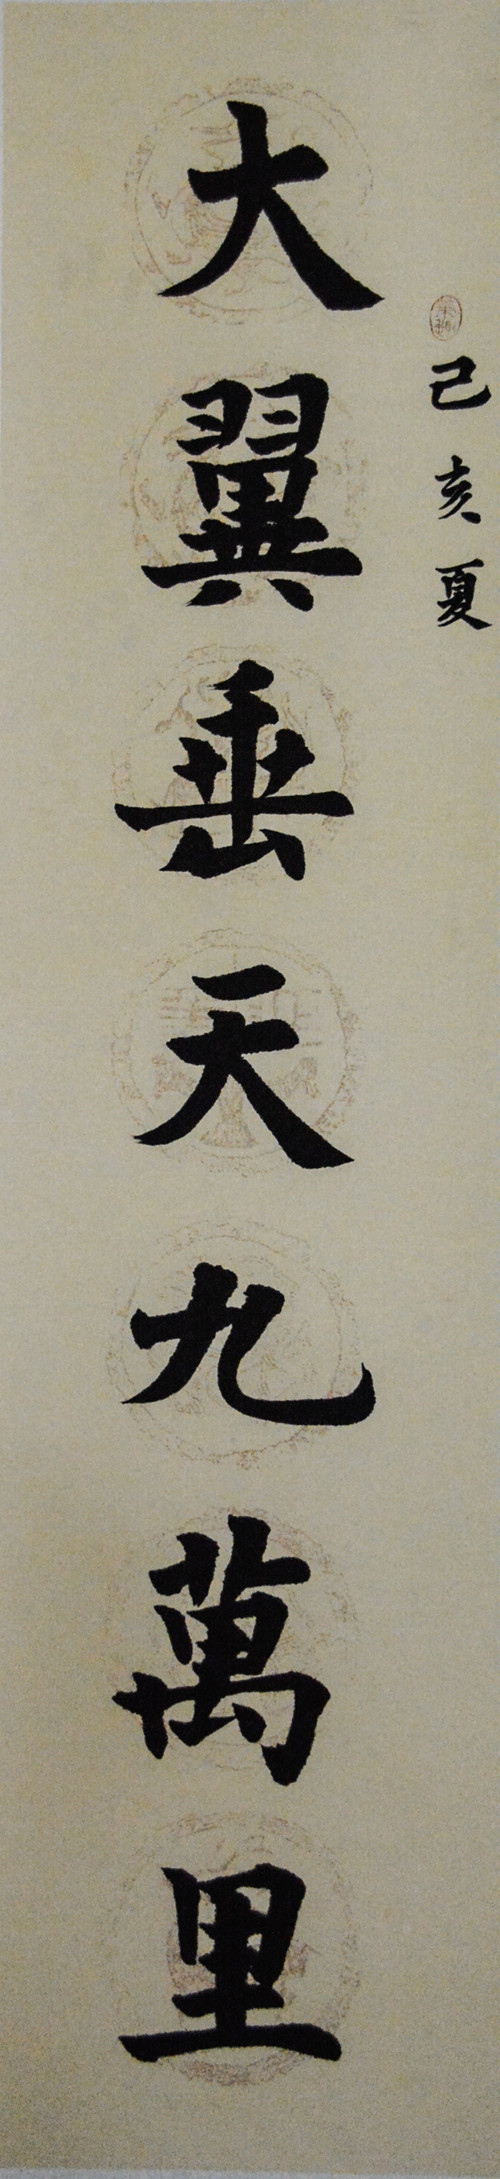 己亥夏
大翼垂天九萬里